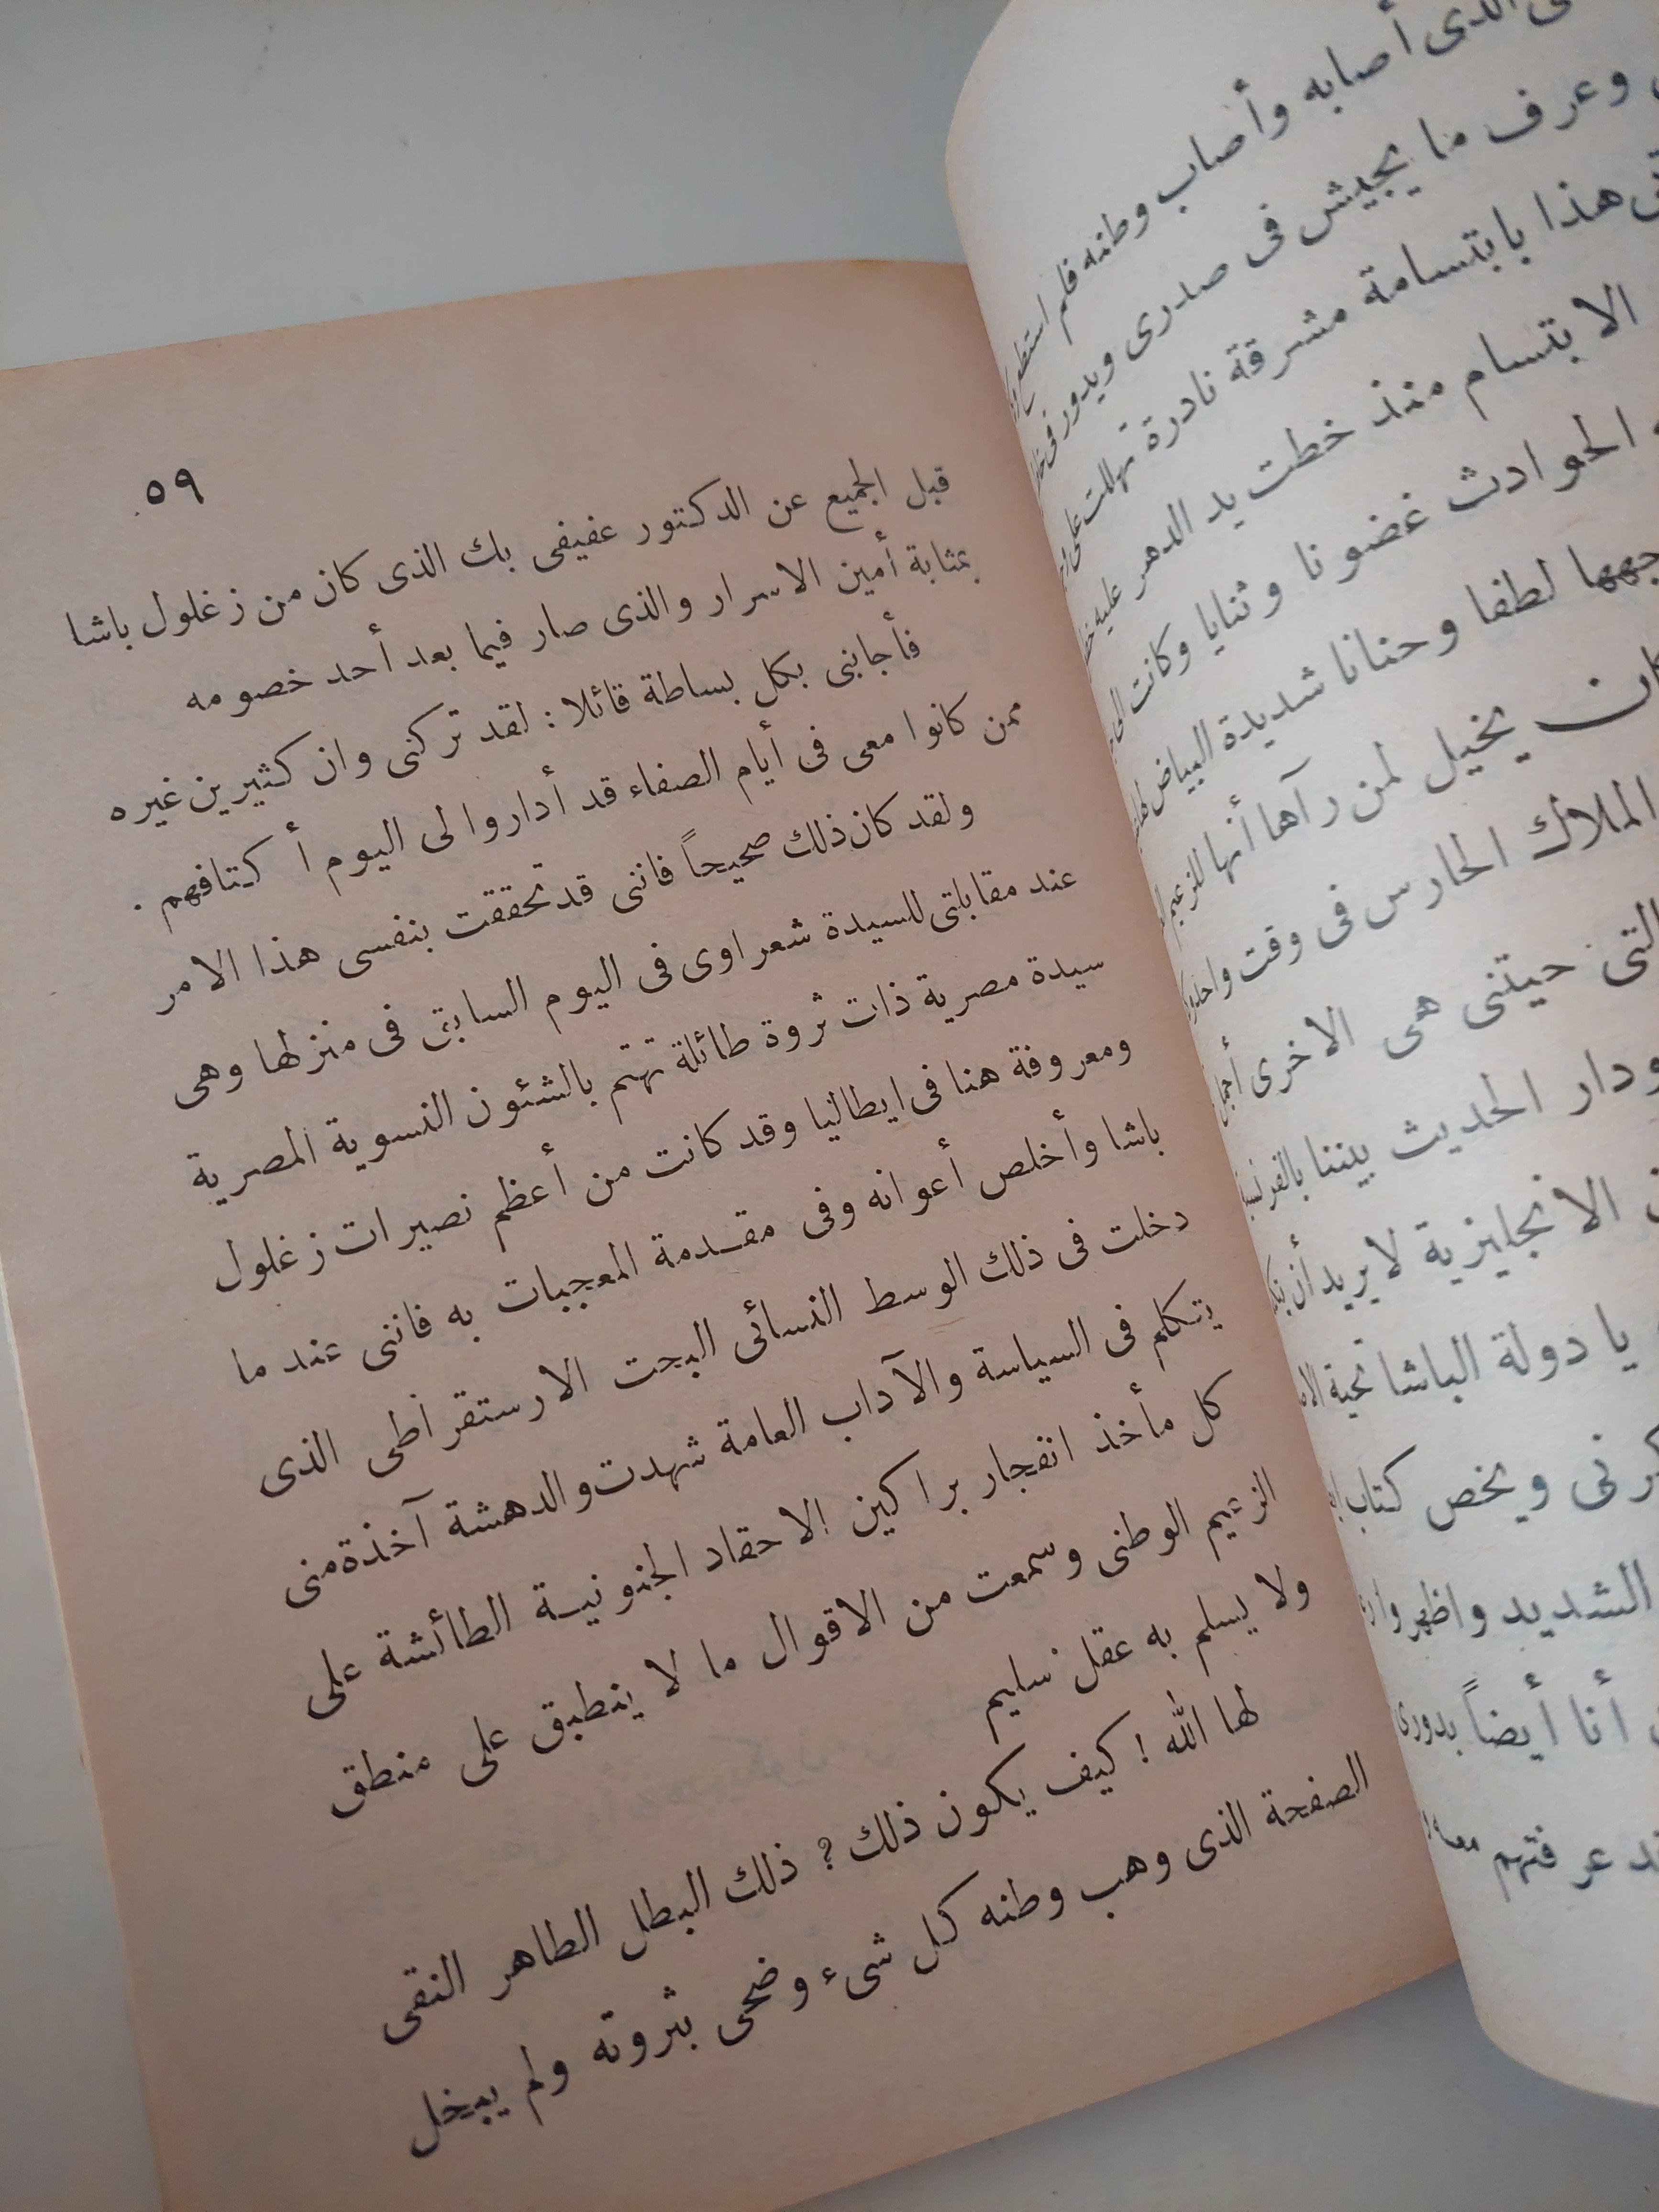 الذى أصابه وأصاب وطنه فلم استطع
وعرف ما يجيش فى صدرى ويدور فى
هذا بابتسامة مشرقة نادرة تهللت على
الابتسام منذ خطت يد الدهر عليه
الحوادث غضونا وثنايا وكانت الى
لطفا وحنانا شديدة البياض
يخيل لمن رآها أنها للزعيم
الملاك الحارس فى وقت واحد
التى حيتنى هى الاخرى أجمل
ودار الحديث بيننا
الانجليزية لا يريد أن
يا دولة الباشا تحية
ويخص كتاب
الشديد واظهر
أنا أيضاً بدورى
عرفتهم
٥٩
قبل الجميع عن الدكتور عفيفى بك الذى كان من زغلول باشا
بمثابة أمين الاسرار والذى صار فيما بعد أحد خصومه
فأجابنى بكل بساطة قائلا : لقد تركنى وان كثيرين غيره
ممن كانوا معى فى أيام الصفاء قد أداروا لى اليوم أكتافهم .
ولقد كان ذلك صحيحاً فاننى قد تحققت بنفسى هذا الامر
عند مقابلتى للسيدة شعراوى فى اليوم السابق فى منزلها وهى
سيدة مصرية ذات ثروة طائلة تهتم بالشئون النسوية المصرية
ومعروفة هنا فى ايطاليا وقد كانت من أعظم نصيرات زغلول
باشا وأخلص أعوانه وفى مقدمة المعجبات به فاننى عند ما
دخلت فى ذلك الوسط النسائى البحت الارستقراطى الذى
يتكلم فى السياسة والآداب العامة شهدت والدهشة آخذة منى
كل مأخذ انفجار براكين الاحقاد الجنونية الطائشة على
الزعيم الوطنى وسمعت من الاقوال ما لا ينطبق على منطق
ولا يسلم به عقل سليم
لها الله ! كيف يكون ذلك ؟ ذلك البطل الطاهر النقى
الصفحة الذى وهب وطنه كل شىء وضحى بثروته ولم يبخل